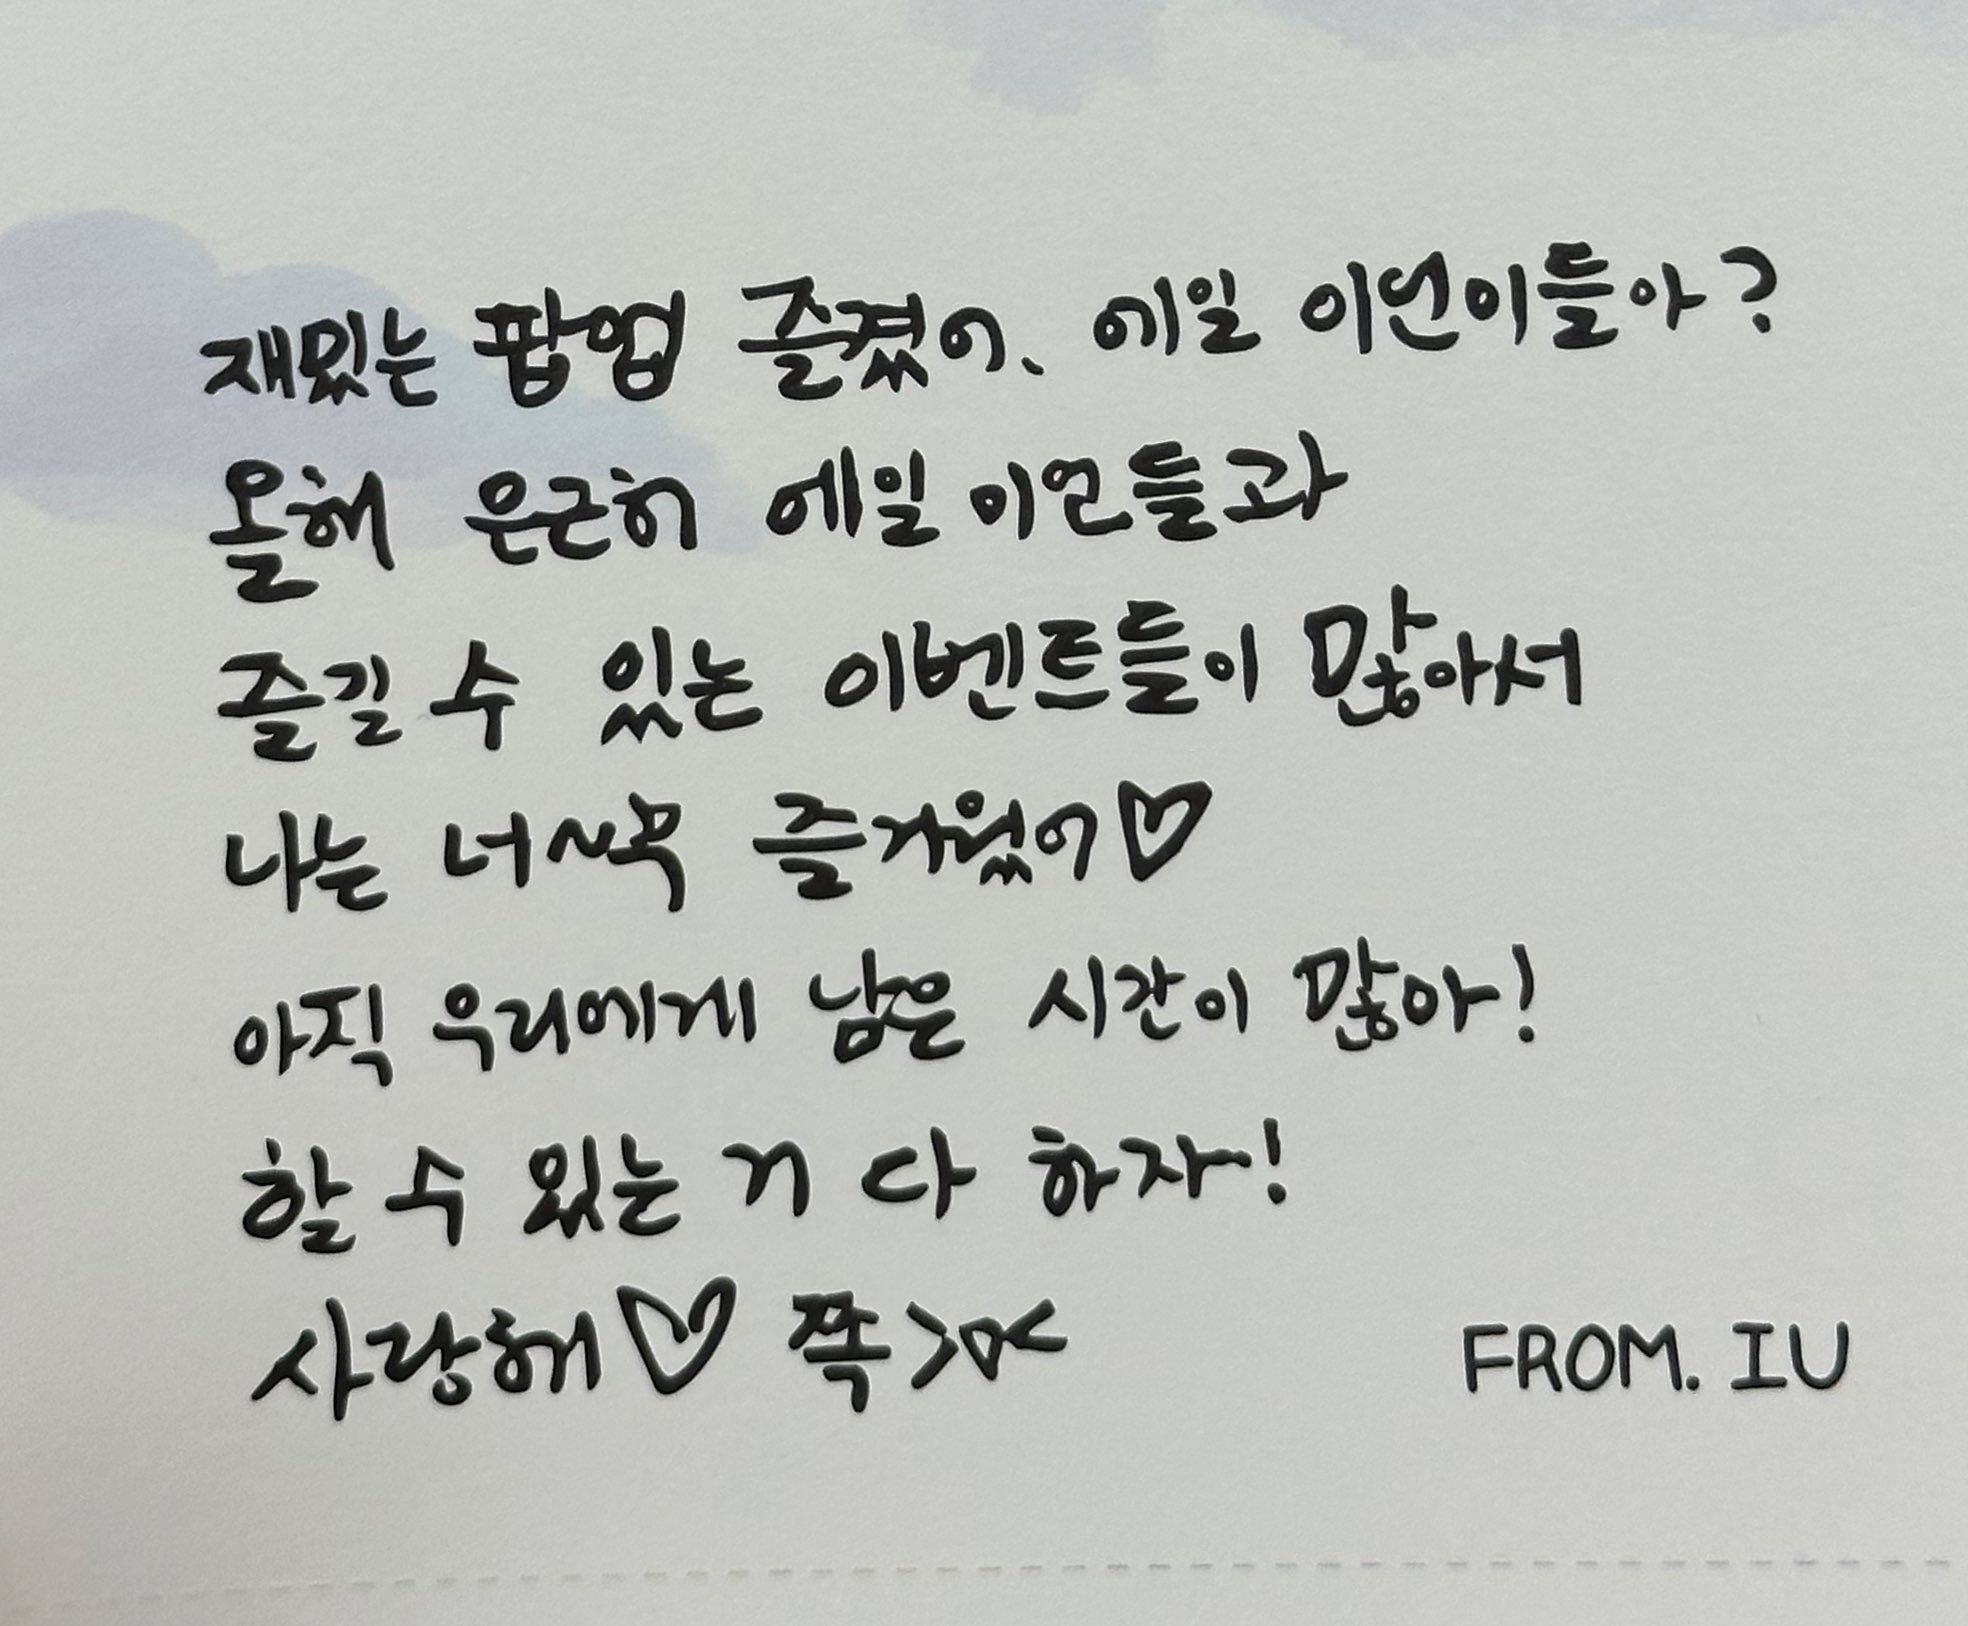 재밌는 팝업 즐겼어, 에일이언이들아?
올해 은근히 에일이언들과
즐길 수 있는 이벤트들이 많아서
나는 너~무 즐거웠어♡
아직 우리에게 남은 시간이 많아!
할 수 있는 거 다 하자!
사랑해♡ 쪽>3<
FROM. IU